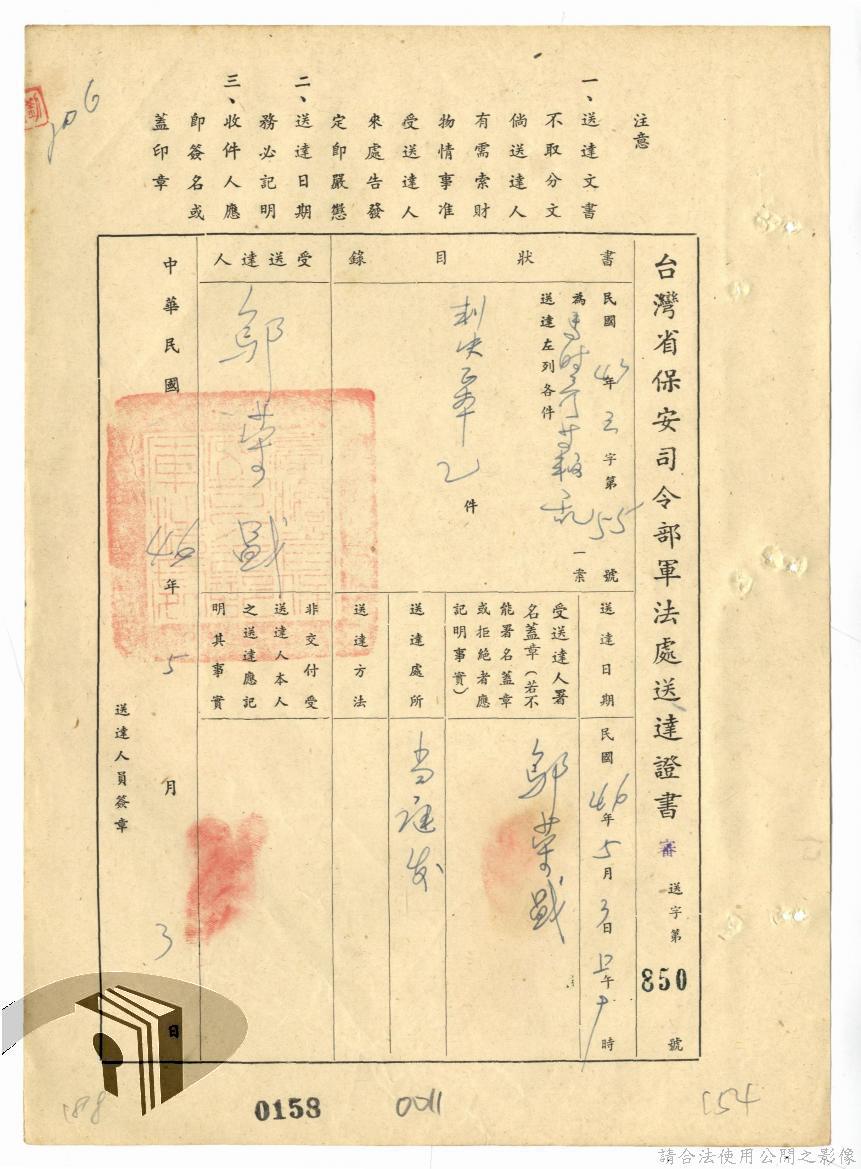 注意
一、送達文書
不取分文
倘送達人
有需索財
物情事准
受送達人
來處告發
定即嚴懲
二、送達日期
務必記明
三、收件人應
即簽名或
蓋印章
106
台灣省保安司令部軍法處送達證書 審 送字第 850 號
書狀目錄
民國 年 字第 55 號
為 叛乱 一案
送達左列各件
判決正本 乙 件
受送達人
鄔 
中華民國 46 年 5 月 3 日
送達日期
民國 46 年 5 月 3 日 上午 時
受送達人署
名蓋章(若不
能署名蓋章
或拒絕者應
記明事實)
鄔 
送達處所
当庭发
送達方法
非交付受
送達人本人
之送達應記
明其事實
送達人員簽章
0153
0011
154
請合法使用公開之影像